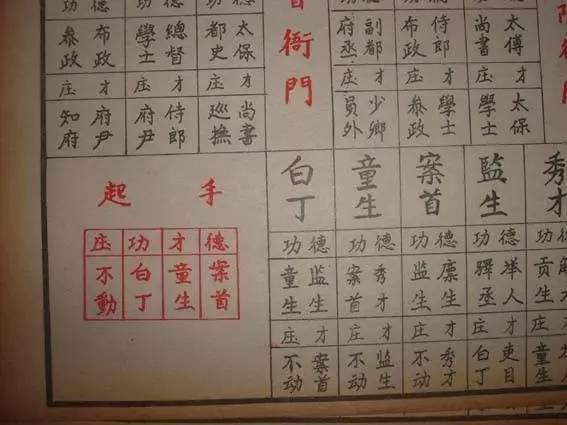 功 德 功 德 功 德
参政 布政 學士 總督 都史 太保
庄 才 庄 才 庄 才
知府 府尹 府尹 侍郎 巡撫 尚書
衙門
府丞 副都 布政 侍郎 尚書 太傅
庄 才 庄 才 庄 才
員外 少卿 参政 學士 學士 太保
起 手
庄 功 才 德
不動 白丁 童生 案首
白丁 童生 案首 監生 秀才
功 德 功 德 功 德 功 德 功
童生 监生 案首 秀才 监生 廪生 驛丞 举人 贡生
庄 才 庄 才 庄 才 庄 才 庄
不动 案首 不动 监生 不动 秀才 白丁 吏目 童生